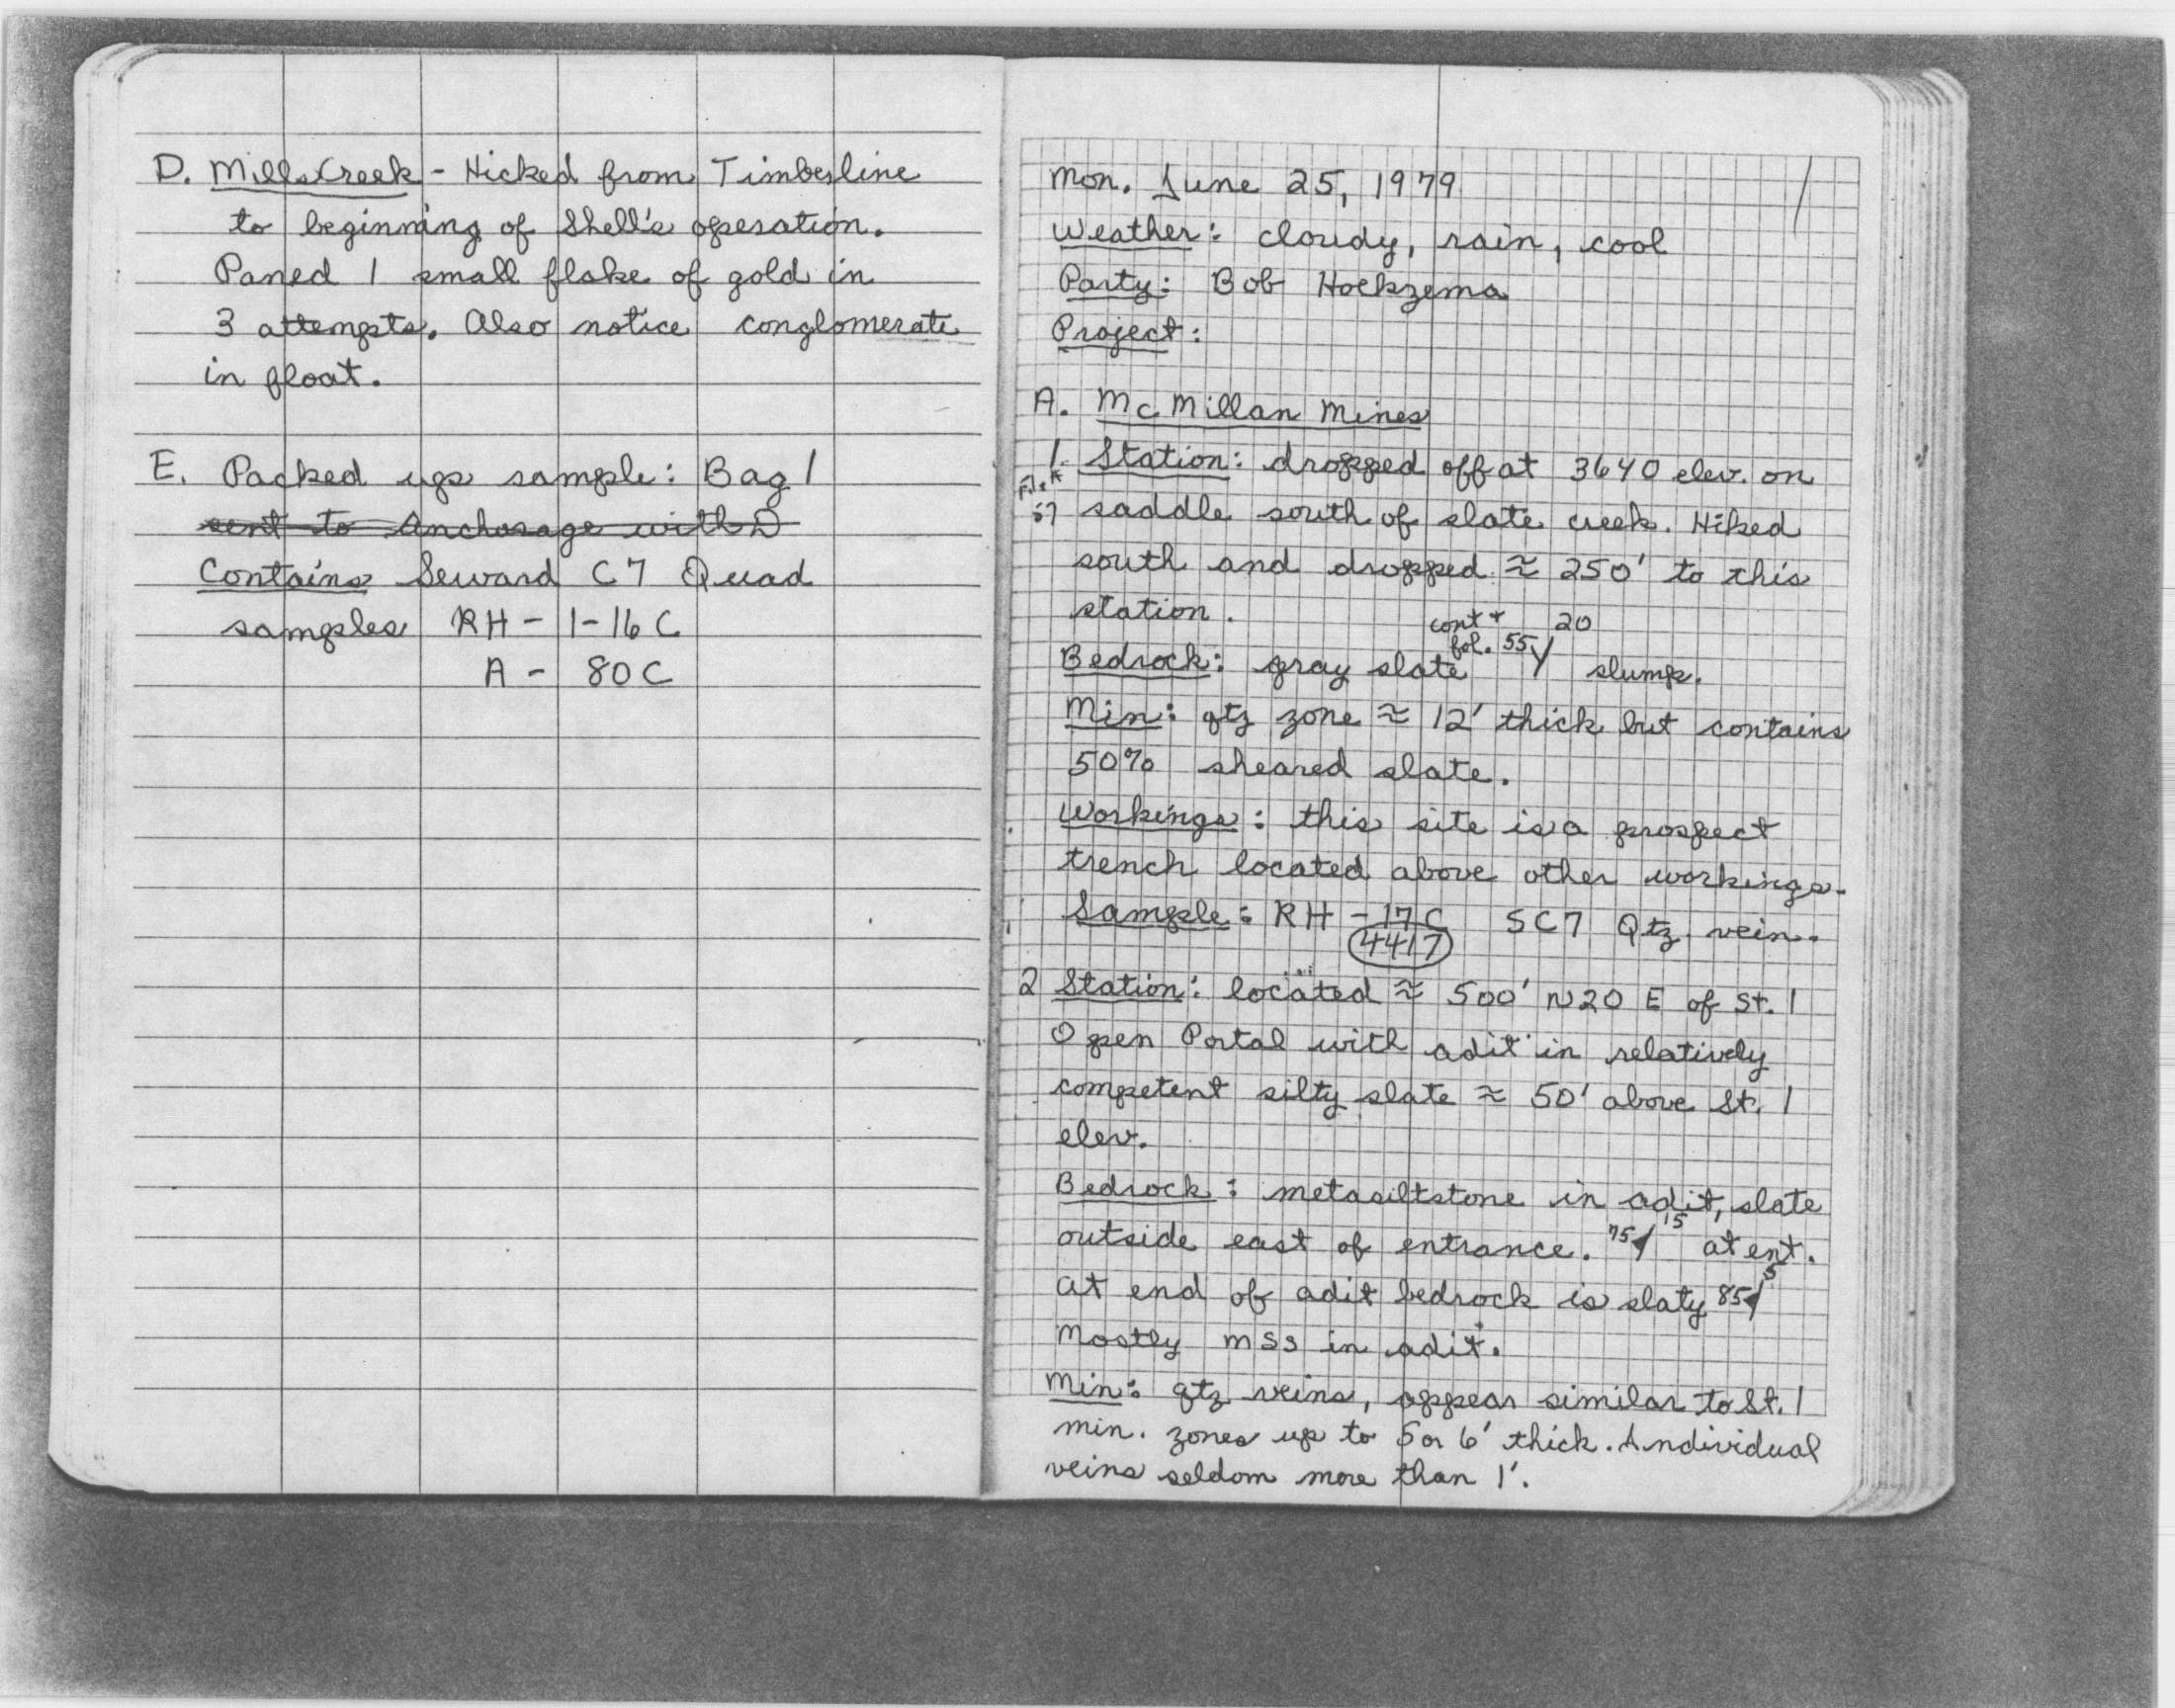 D. Mills Creek - Hicked from Timberline
to beginning of Shell's operation.
Paned 1 small flake of gold in
3 attempts. Also notice conglomerate
in float.
E. Packed up sample: Bag 1
sent to Anchorage with D
Contains Seward C7 Quad
samples RH - 1-16 C
A - 80C
Mon. June 25, 1979
Weather: cloudy, rain, cool
Party: Bob Hoekzema
Project:
A. McMillan Mines
1. Station: dropped off at 3640 elev. on
saddle south of slate creek. Hiked
south and dropped ≈ 250' to this
station.
cont + 20
fol. 55
Bedrock: gray slate slump.
Min: qtz zone ≈ 12' thick but contains
50% sheared slate.
Workings: this site is a prospect
trench located above other workings.
Sample: RH - 17C SC7 Qtz vein.
4417
2 Station: located ≈ 500' N20 E of St. 1
Open Portal with adit in relatively
competent silty slate ≈ 50' above St. 1
elev.
Bedrock: metasiltstone in adit, slate
outside east of entrance. 75 15 at ent.
At end of adit bedrock is slaty 85 5
Mostly mss in adit.
Min: qtz veins, appear similar to St. 1
min. zones up to 5 or 6' thick. Individual
veins seldom more than 1'.